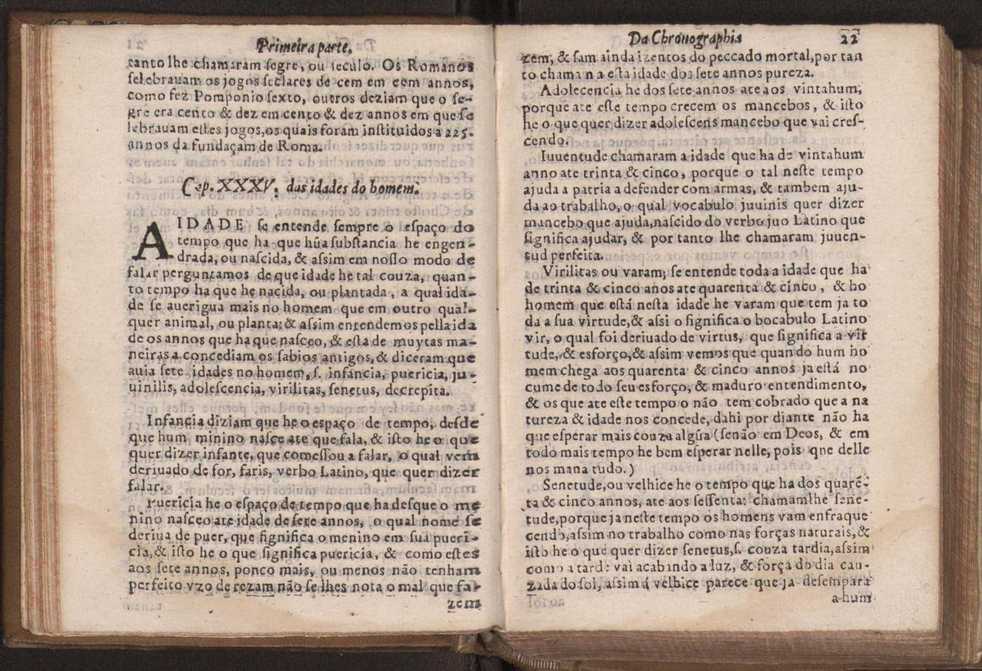 Primeira parte.
tanto lhe chamaram segre, ou seculo. Os Romanos
selebrauam os jogos seclares de cem em cem annos,
como fez Pomponio sexto, outros deziam que o se-
gre era cento & dez em cento & dez annos em que se
lebrauam estes jogos, os quais foram instituidos a 225.
annos da fundaçam de Roma.
Cap. XXXV. das idades do homem.
A IDADE se entende sempre o espaço do
tempo que ha que hũa substancia he engen-
drada, ou nascida, & assim em nosso modo de
falar perguntamos de que idade he tal couza, quan-
to tempo ha que he nacida, ou plantada, a qual ida-
de se auerigua mais no homem que em outro qual-
quer animal, ou planta: & assim entendemos pella ida
de os annos que ha que nasceo, & esta de muytas ma-
neiras a concediam os sabios antigos, & diceram que
auia sete idades no homem, s. infancia, puericia, ju-
uinilis, adolescencia, virilitas, senetus, decrepita.
Infancia diziam que he o espaço de tempo, desde
que hum minino nasce ate que fala, & isto he o que
quer dizer infante, que comessou a falar, o qual vem
deriuado de for, faris, verbo Latino, que quer dizer
falar.
Puericia he o espaço de tempo que ha desque o me
nino nasceo ate idade de sete annos, o qual nome se
deriua de puer, que significa o menino em sua pueri-
cia, & isto he o que significa puericia, & como estes
aos sete annos, ponco mais, ou menos não tenham
perfeito vzo de rezam não se lhes nota o mal que fa-
zem
Da Chronographia 22
zem, & sam ainda izentos do peccado mortal, por tan
to chama n a esta idade dos sete annos pureza.
Adolecencia he dos sete annos ate aos vintahum,
porque ate este tempo crecem os mancebos, & isto
he o que quer dizer adolescens mancebo que vai cres-
cendo.
Iuuentude chamaram a idade que ha de vintahum
anno ate trinta & cinco, porque o tal neste tempo
ajuda a patria a defender com armas, & tambem aju-
da ao trabalho, o qual vocabulo juuinis quer dizer
mancebo que ajuda, nascido do verbo juo Latino que
significa ajudar, & por tanto lhe chamaram juuen-
tud perfeita.
Virilitas ou varam, se entende toda a idade que ha
de trinta & cinco annos ate quarenta & cinco, & ho
homem que está nesta idade he varam que tem ja to
da a sua virtude, & assi o significa o bocabulo Latino
vir, o qual foi deriuado de virtus, que significa a vir
tude, & esforço, & assim vemos que quando hum ho
mem chega aos quarenta & cinco annos ja está no
cume de todo seu esforço, & maduro entendimento,
& os que ate este tempo o não tem cobrado que a na
tureza & idade nos concede, dahi por diante não ha
que esperar mais couza algũa (senão em Deos, & em
todo mais tempo he bem esperar nelle, pois que delle
nos mana tudo.)
Senetude, ou velhice he o tempo que ha dos quarē-
ta & cinco annos, ate aos sessenta: chamamlhe sene-
tude, porque ja neste tempo os homens vam enfraque
cendo, assim no trabalho como nas forças naturais, &
isto he o que quer dizer senetus, s. couza tardia, assim
como a tarde vai acabindo a luz, & força do dia cau-
zada do sol, assim a velhice parece que ja desempara
a hum